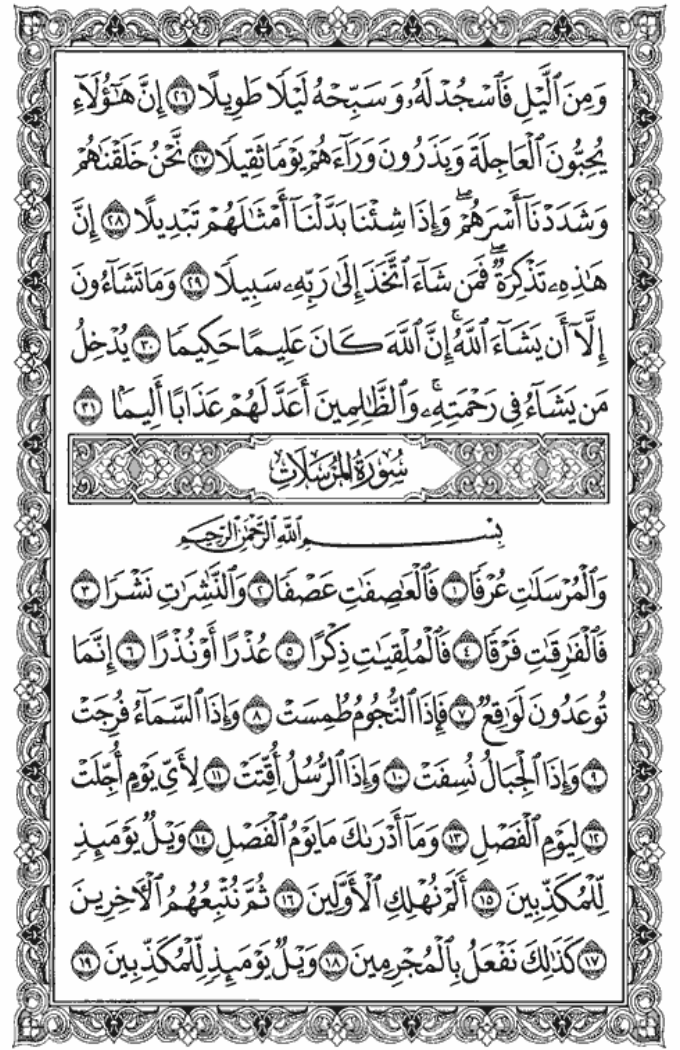 وَمِنَ ٱلَّيْلِ فَٱسْجُدْ لَهُۥ وَسَبِّحْهُ لَيْلًا طَوِيلًا ٢٦ إِنَّ هَٰٓؤُلَآءِ
يُحِبُّونَ ٱلْعَاجِلَةَ وَيَذَرُونَ وَرَآءَهُمْ يَوْمًا ثَقِيلًا ٢٧ نَّحْنُ خَلَقْنَٰهُمْ
وَشَدَدْنَآ أَسْرَهُمْ ۖ وَإِذَا شِئْنَا بَدَّلْنَآ أَمْثَٰلَهُمْ تَبْدِيلًا ٢٨ إِنَّ
هَٰذِهِۦ تَذْكِرَةٌ ۖ فَمَن شَآءَ ٱتَّخَذَ إِلَىٰ رَبِّهِۦ سَبِيلًا ٢٩ وَمَا تَشَآءُونَ
إِلَّآ أَن يَشَآءَ ٱللَّهُ ۚ إِنَّ ٱللَّهَ كَانَ عَلِيمًا حَكِيمًا ٣٠ يُدْخِلُ
مَن يَشَآءُ فِى رَحْمَتِهِۦ ۚ وَٱلظَّٰلِمِينَ أَعَدَّ لَهُمْ عَذَابًا أَلِيمًۢا ٣١
سُورَةُ المُرْسَلَاتِ
بِسْمِ ٱللَّهِ ٱلرَّحْمَٰنِ ٱلرَّحِيمِ
وَٱلْمُرْسَلَٰتِ عُرْفًا ١ فَٱلْعَٰصِفَٰتِ عَصْفًا ٢ وَٱلنَّٰشِرَٰتِ نَشْرًا ٣
فَٱلْفَٰرِقَٰتِ فَرْقًا ٤ فَٱلْمُلْقِيَٰتِ ذِكْرًا ٥ عُذْرًا أَوْ نُذْرًا ٦ إِنَّمَا
تُوعَدُونَ لَوَٰقِعٌ ٧ فَإِذَا ٱلنُّجُومُ طُمِسَتْ ٨ وَإِذَا ٱلسَّمَآءُ فُرِجَتْ
٩ وَإِذَا ٱلْجِبَالُ نُسِفَتْ ١٠ وَإِذَا ٱلرُّسُلُ أُقِّتَتْ ١١ لِأَىِّ يَوْمٍ أُجِّلَتْ
١٢ لِيَوْمِ ٱلْفَصْلِ ١٣ وَمَآ أَدْرَىٰكَ مَا يَوْمُ ٱلْفَصْلِ ١٤ وَيْلٌ يَوْمَئِذٍ
لِّلْمُكَذِّبِينَ ١٥ أَلَمْ نُهْلِكِ ٱلْأَوَّلِينَ ١٦ ثُمَّ نُتْبِعُهُمُ ٱلْءَاخِرِينَ
١٧ كَذَٰلِكَ نَفْعَلُ بِٱلْمُجْرِمِينَ ١٨ وَيْلٌ يَوْمَئِذٍ لِّلْمُكَذِّبِينَ ١٩